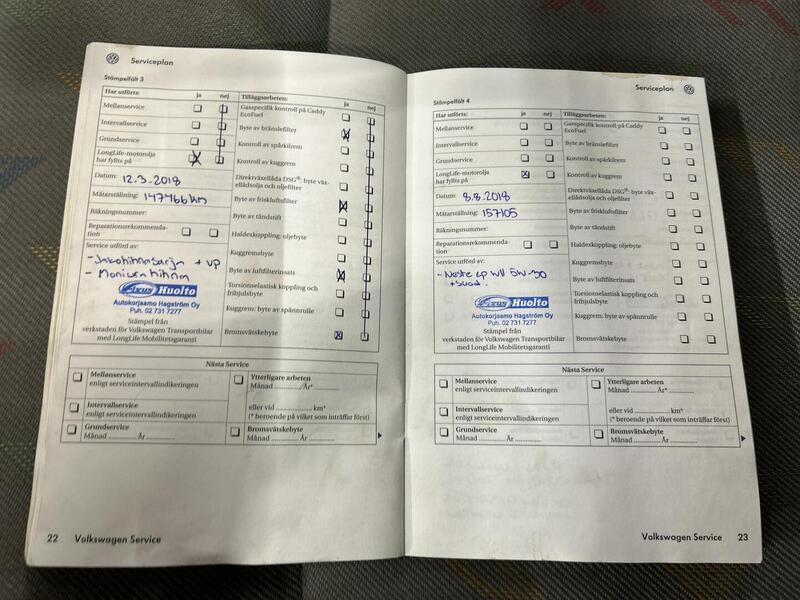 Serviceplan
Stämpelfält 3
Har utförts: ja nej
Mellanservice
Intervallservice
Grundservice
LongLife-motorolja
har fyllts på
Datum: 12.3.2018
Mätarställning: 147466 km
Räkningsnummer:
Reparationsrekommenda-
tion
Service utförd av:
- Jakohihnasarja + VP
- Moniurahihna
Fixus Huolto
Autokorjaamo Hagström Oy
Puh. 02 731 7277
Stämpel från
verkstaden för Volkswagen Transportbilar
med LongLife Mobilitetsgaranti
Tilläggsarbeten: ja nej
Gasspecifik kontroll på Caddy
EcoFuel
Byte av bränslefilter
Kontroll av spårkilrem
Kontroll av kuggrem
Direktväxellåda DSG®: byte väx-
ellådsolja och oljefilter
Byte av friskluftsfilter
Byte av tändstift
Haldexkoppling: oljebyte
Kuggremsbyte
Byte av luftfilterinsats
Torsionselastisk koppling och
frihjulsbyte
Kuggrem: byte av spännrulle
Bromsvätskebyte
Nästa Service
Mellanservice
enligt serviceintervallindikeringen
Intervallservice
enligt serviceintervallindikeringen
Grundservice
Månad ............ År ............
Ytterligare arbeten
Månad ............ År*............
eller vid ............ km*
(* beroende på vilket som inträffar först)
Bromsvätskebyte
Månad ............ År ............
22 Volkswagen Service
Serviceplan
Stämpelfält 4
Har utförts: ja nej
Mellanservice
Intervallservice
Grundservice
LongLife-motorolja
har fyllts på
Datum: 8.8.2018
Mätarställning: 157105
Räkningsnummer:
Reparationsrekommenda-
tion
Service utförd av:
- Neste 5W-30
Fixus Huolto
Autokorjaamo Hagström Oy
Puh. 02 731 7277
Stämpel från
verkstaden för Volkswagen Transportbilar
med LongLife Mobilitetsgaranti
Tilläggsarbeten: ja nej
Gasspecifik kontroll på Caddy
EcoFuel
Byte av bränslefilter
Kontroll av spårkilrem
Kontroll av kuggrem
Direktväxellåda DSG®: byte väx-
ellådsolja och oljefilter
Byte av friskluftsfilter
Byte av tändstift
Haldexkoppling: oljebyte
Kuggremsbyte
Byte av luftfilterinsats
Torsionselastisk koppling och
frihjulsbyte
Kuggrem: byte av spännrulle
Bromsvätskebyte
Nästa Service
Mellanservice
enligt serviceintervallindikeringen
Intervallservice
enligt serviceintervallindikeringen
Grundservice
Månad ............ År ............
Ytterligare arbeten
Månad ............ År*............
eller vid ............ km*
(* beroende på vilket som inträffar först)
Bromsvätskebyte
Månad ............ År ............
Volkswagen Service 23